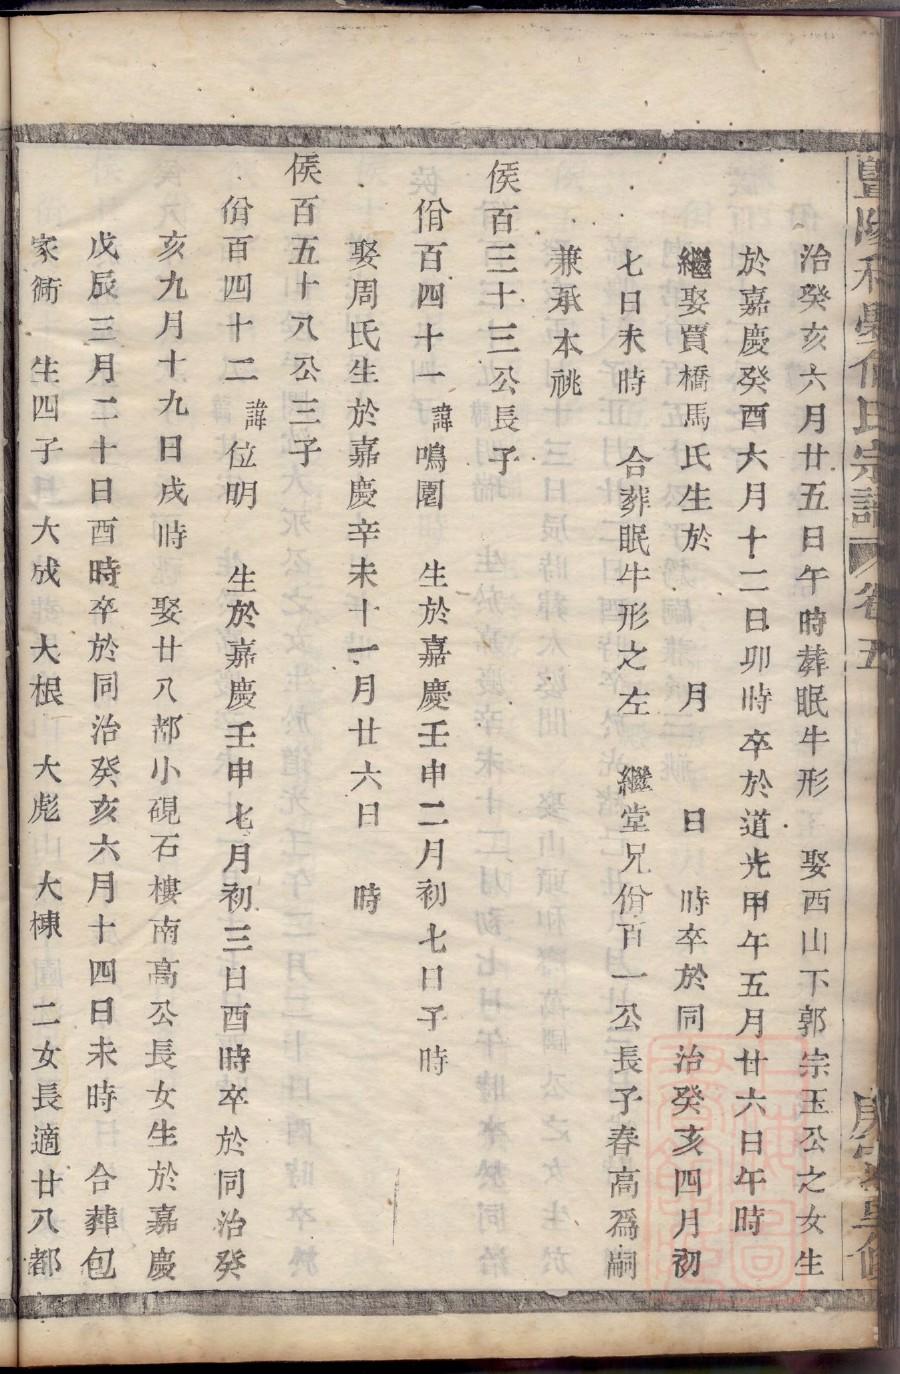 治癸亥六月廿五日午時葬眠牛形　娶西山下郭宗玉公之女生
於嘉慶癸酉六月十二日卯時卒於道光甲午五月廿六日午時
繼娶賈橋馬氏生於　月　日　時卒於同治癸亥四月初
七日未時　合葬眠牛形之左　繼堂兄佾百一公長子春高爲嗣
兼承本祧
侯百三十三公長子
佾百四十一諱鳴園　生於嘉慶壬申二月初七日子時
娶周氏生於嘉慶辛未十一月廿六日　時
侯百五十八公三子
佾百四十二諱位明　生於嘉慶壬申七月初三日酉時卒於同治癸
亥九月十九日戌時　娶廿八都小硯石樓南高公長女生於嘉慶
戊辰三月二十日酉時卒於同治癸亥六月十四日未時　合葬包
家衕　生四子　大成　大根　大彪　大棟　二女長適廿八都
氏宗譜　卷五